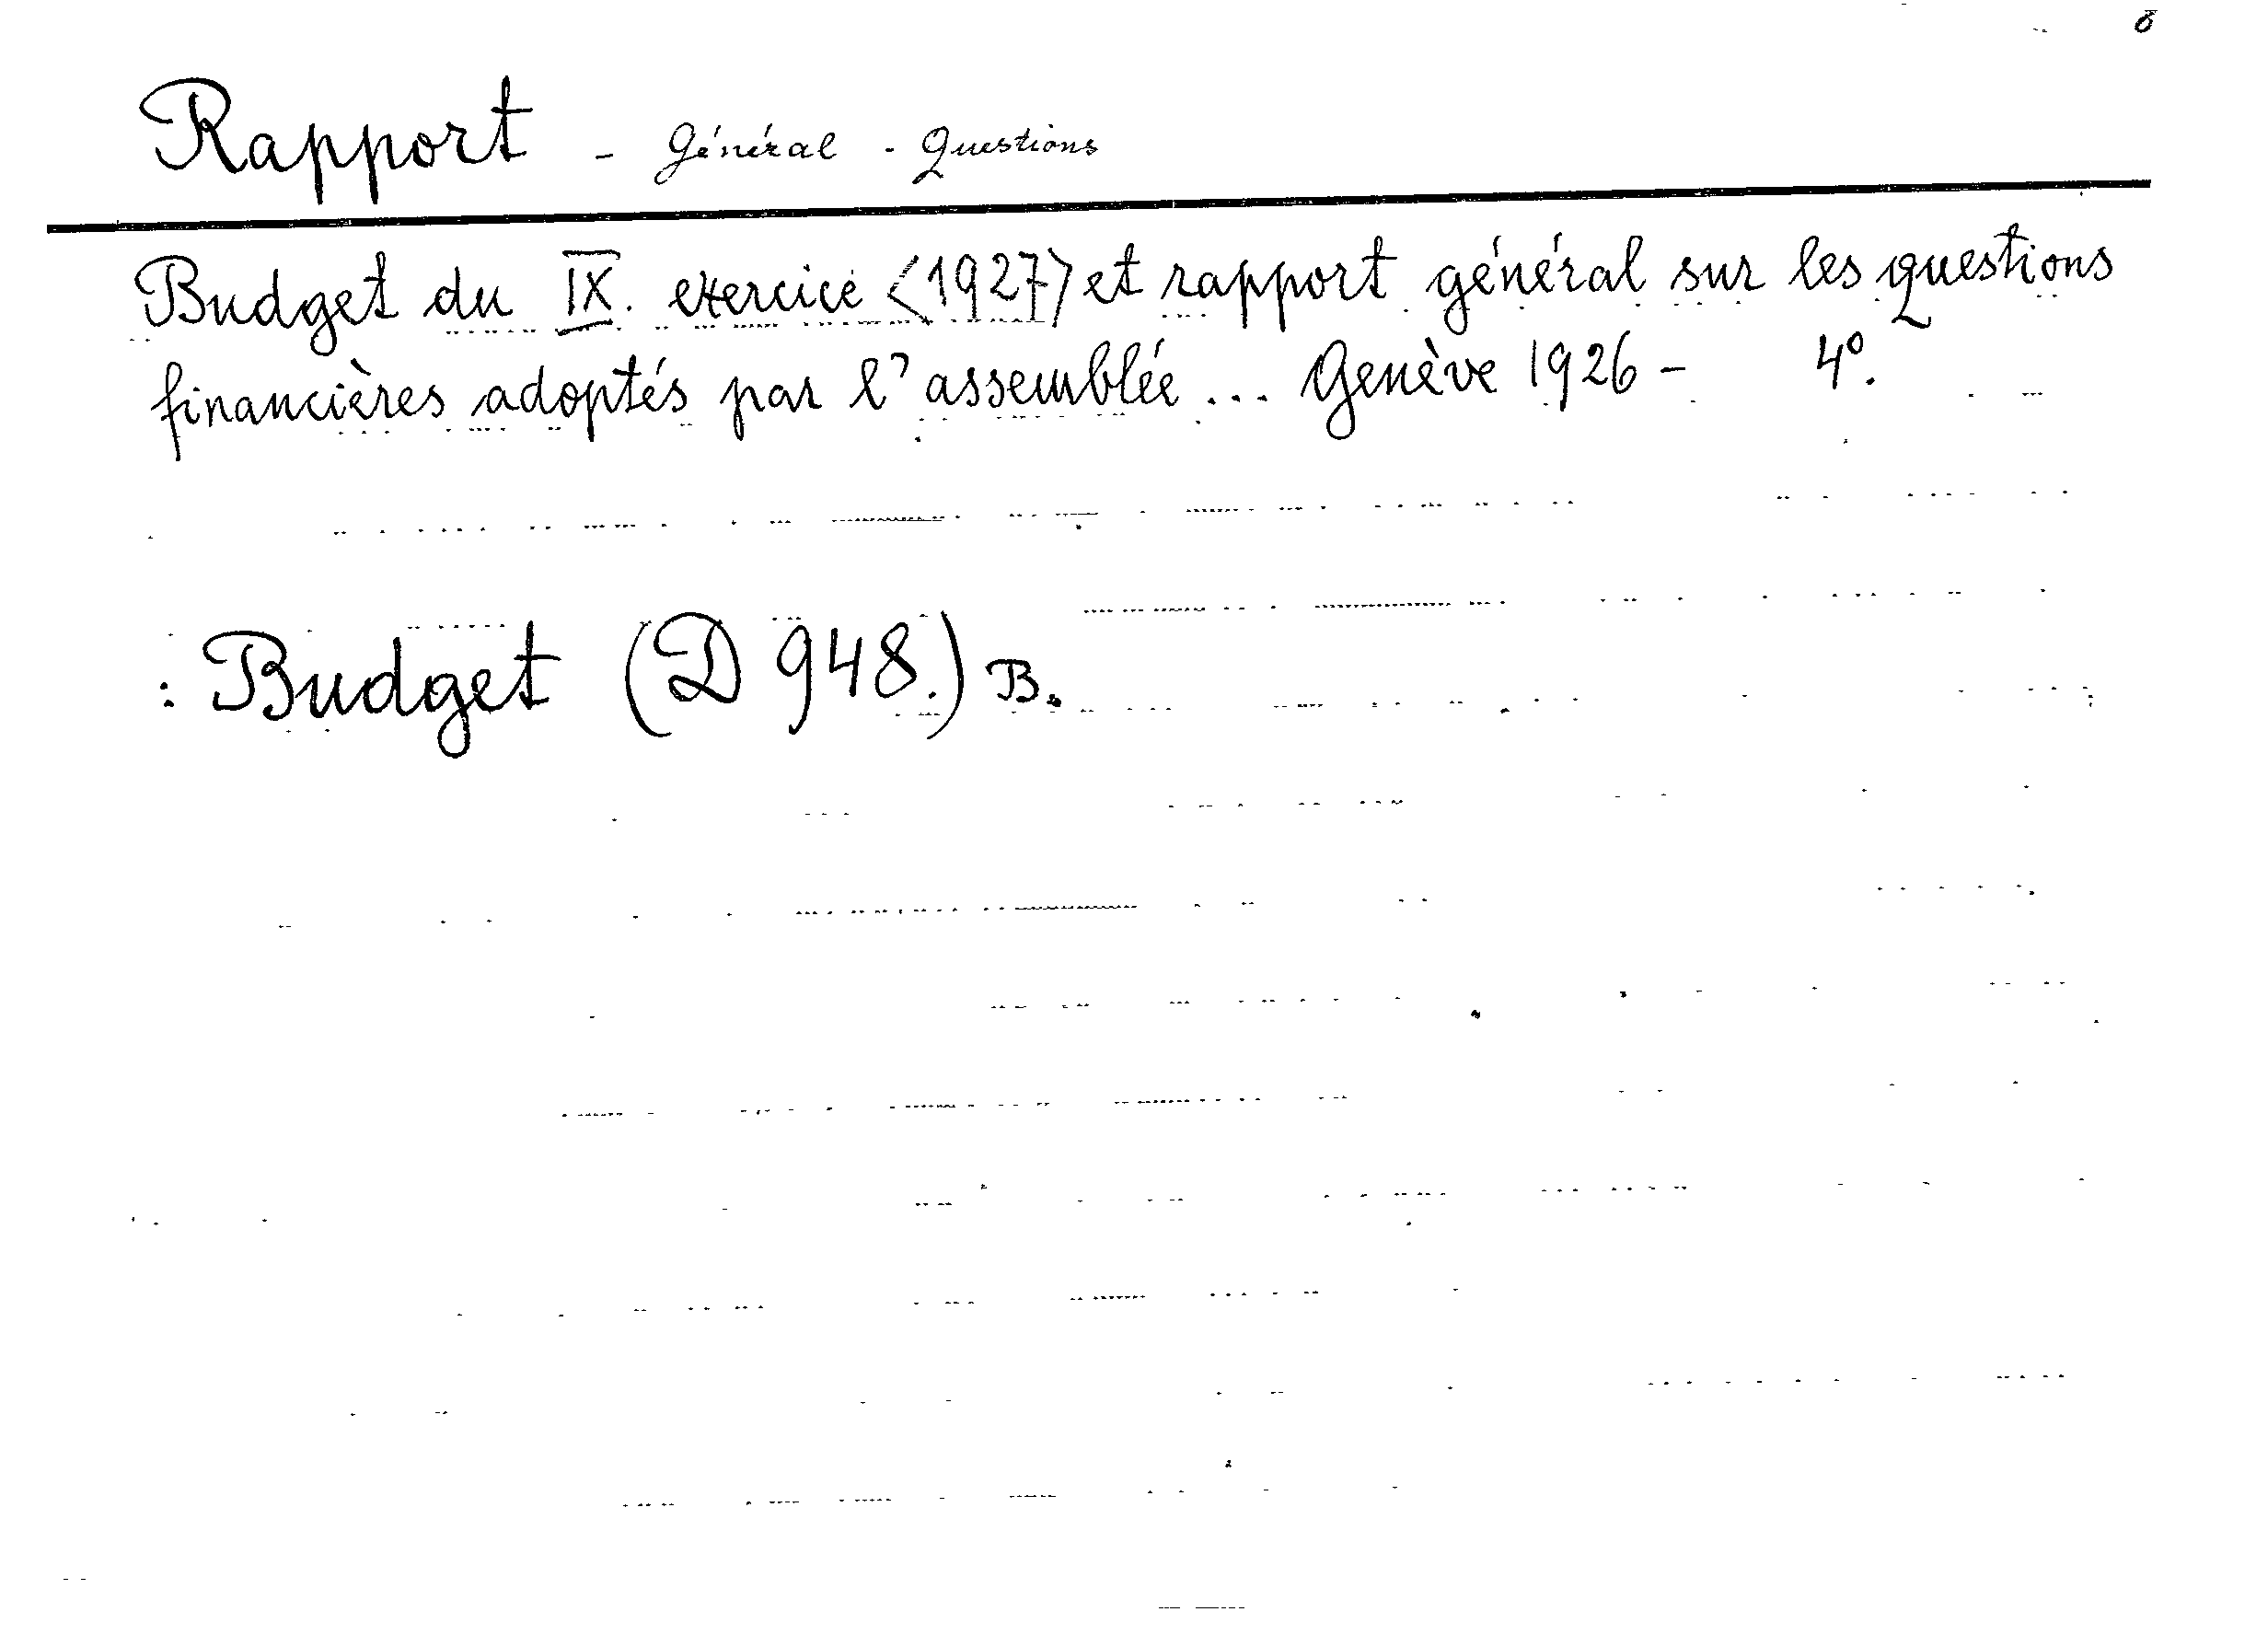 Rapport - Général - Questions
Budget du IX. exercice <1927> et rapport général sur les questions
financières adoptés par l'assemblée ... Genève 1926 - 4°.
: Budget (D 948.) B.